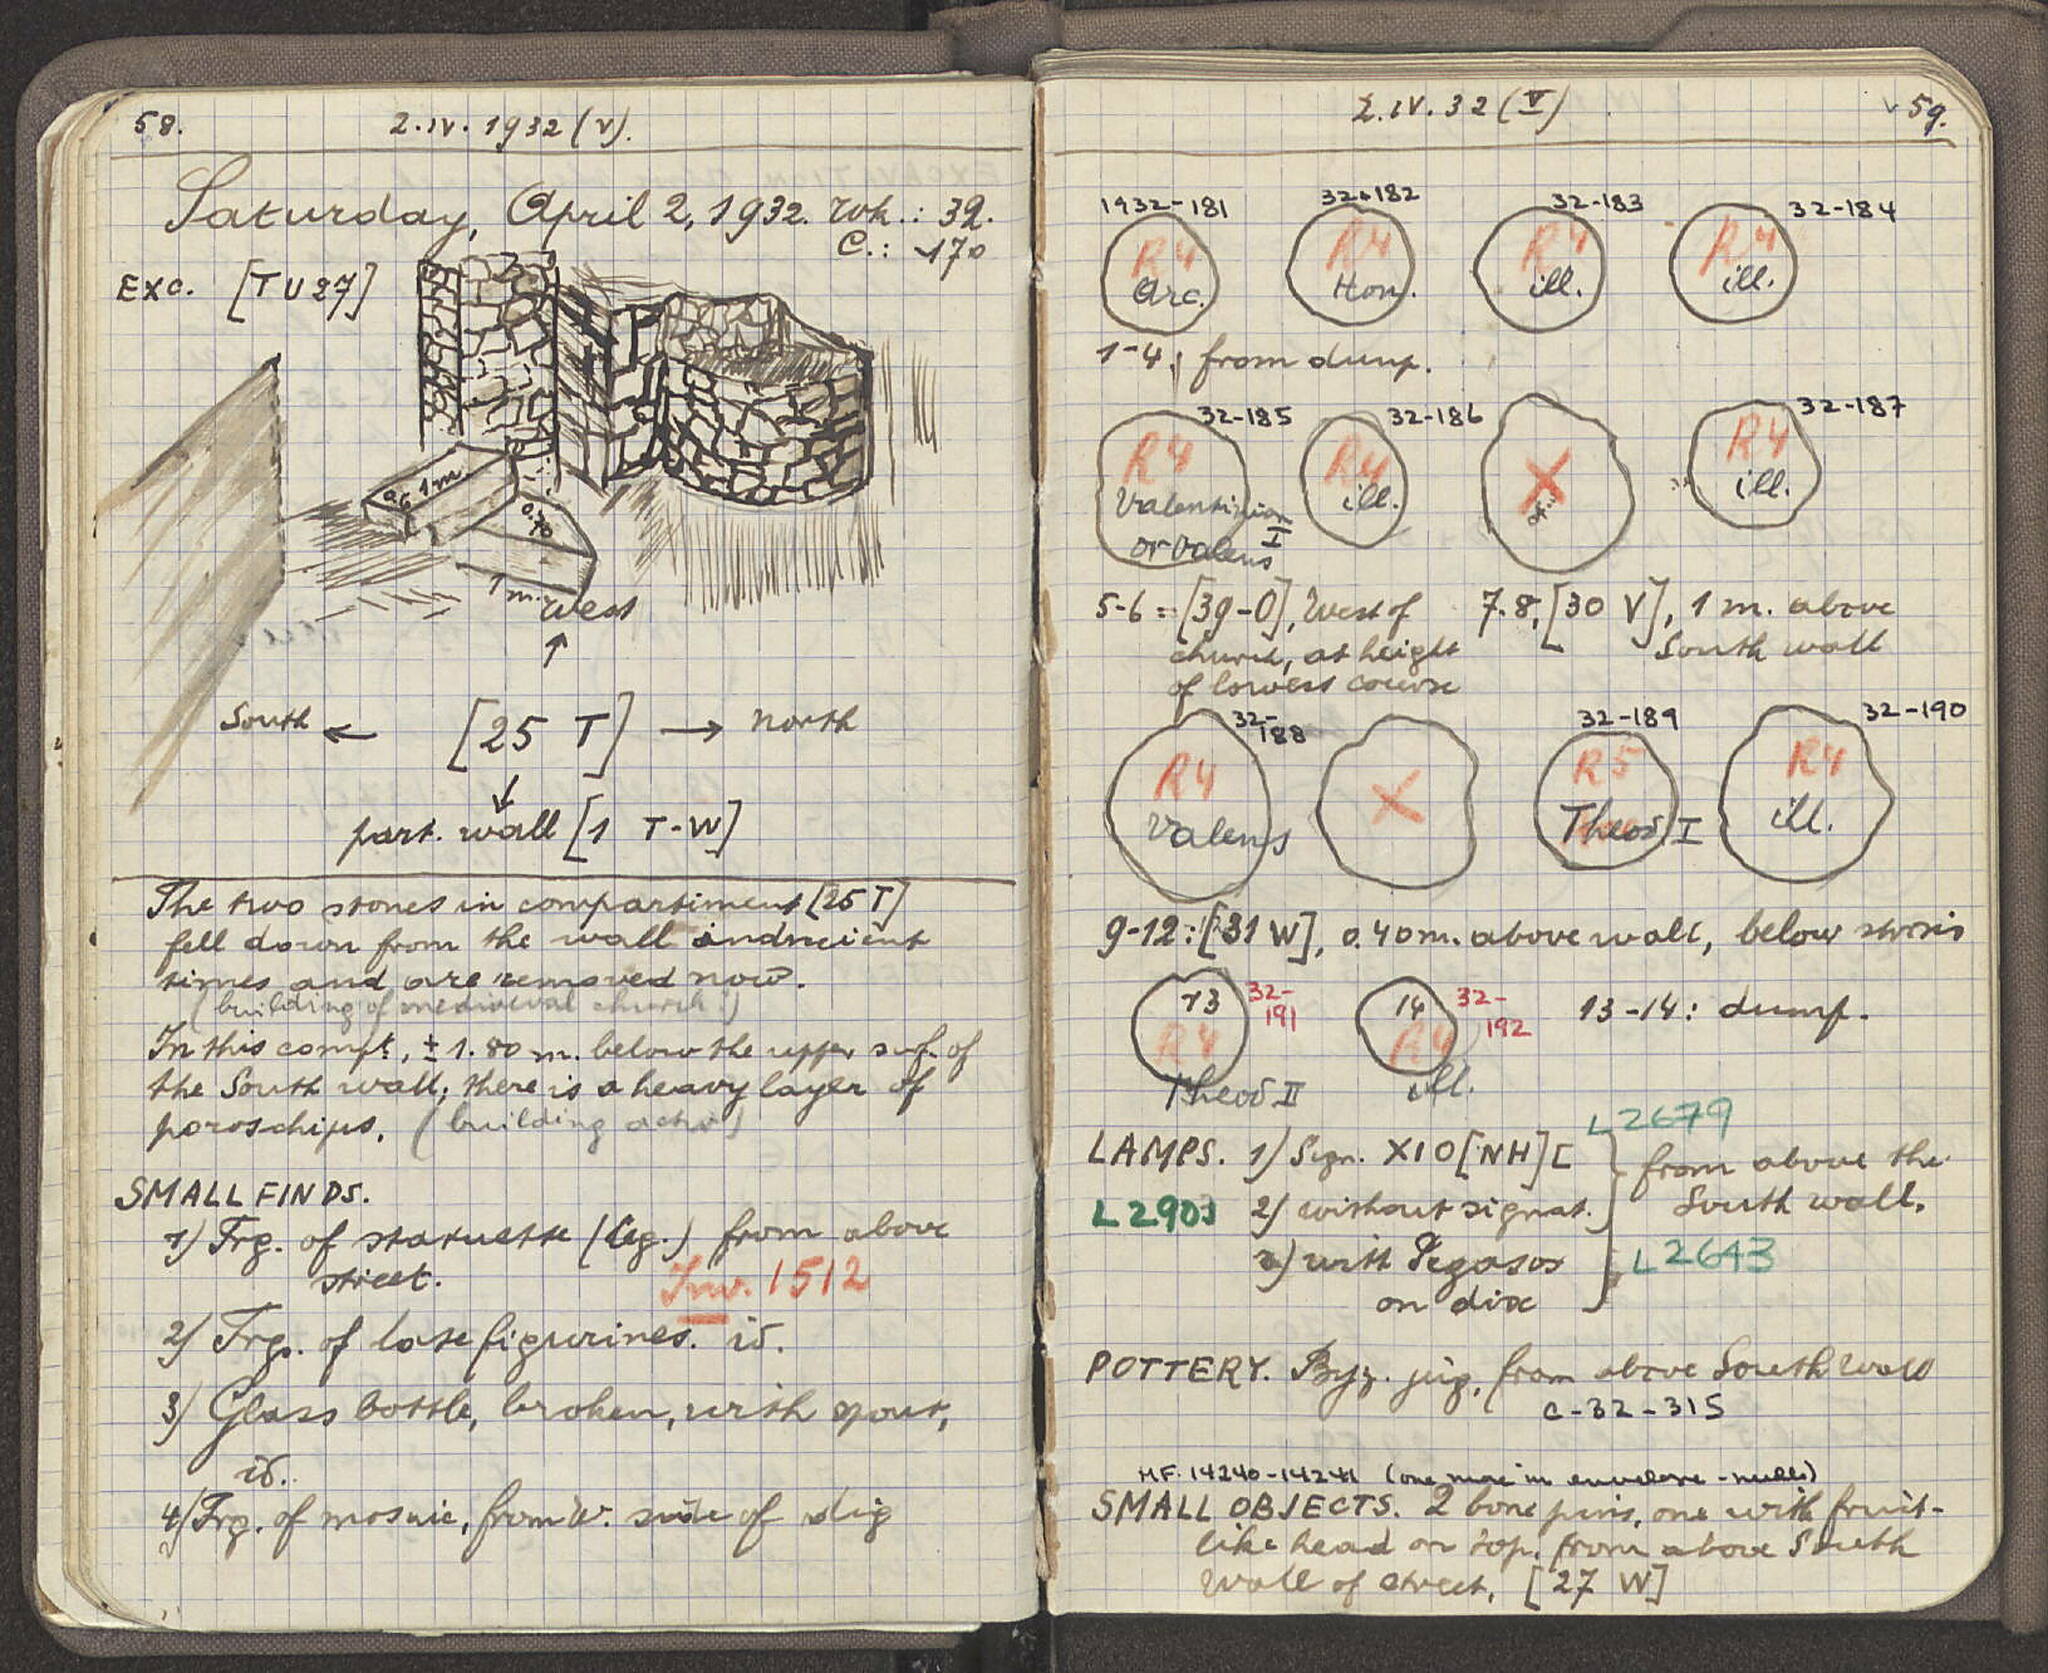 58.
2.IV.1932 (V).
Saturday, April 2, 1932. Wk.: 32.
C.: 170
EXC. [TU27]
1 m
0.70
1 m.
West
South ← [25 T] → North
part. wall [1 T-W]
The two stones in compartiment [25 T]
fell down from the wall in ancient
times and are removed now.
(building of mediaeval church?)
In this compt, ± 1.80 m. below the upper surf. of
the South wall, there is a heavy layer of
poroschips. (building)
SMALL FINDS.
1) Frg. of statuette (leg.) from above
street.
Inv. 1512
2) Frgs. of late figurines. id.
3) Glass bottle, broken, with spout,
id.
4) Frg. of mosaic, from W. side of dig
2.IV.32 (V)
59.
1932-181 32-182 32-183 32-184
R4 R4 R4 R4
Arc. Hon. ill. ill.
1-4; from dump.
32-185 32-186 32-187
R4 R4 X R4
Valentinian I ill. ill.
or Valens
5-6 = [39-O], West of
church, at height
of lowest course
7.8, [30 V], 1 m. above
South wall
32-188 32-189 32-190
R4 X R5 R4
Valens Theod I ill.
9-12: [31 W], 0.40 m. above wall, below
13 32-191 14 32-192 13-14: dump.
R4 R4
Theod II ill.
L2679
LAMPS. 1) Sign. XIO[NH][ from above the
L2903 2) without signat. South wall.
3) with Pegasos L2643
on disc
POTTERY. Byz. jug, from above South wall
C-32-315
MF. 14240-14241 (one more in envelope - nulls)
SMALL OBJECTS. 2 bone pins, one with fruit-
like head on top, from above South
wall of street, [27 W]